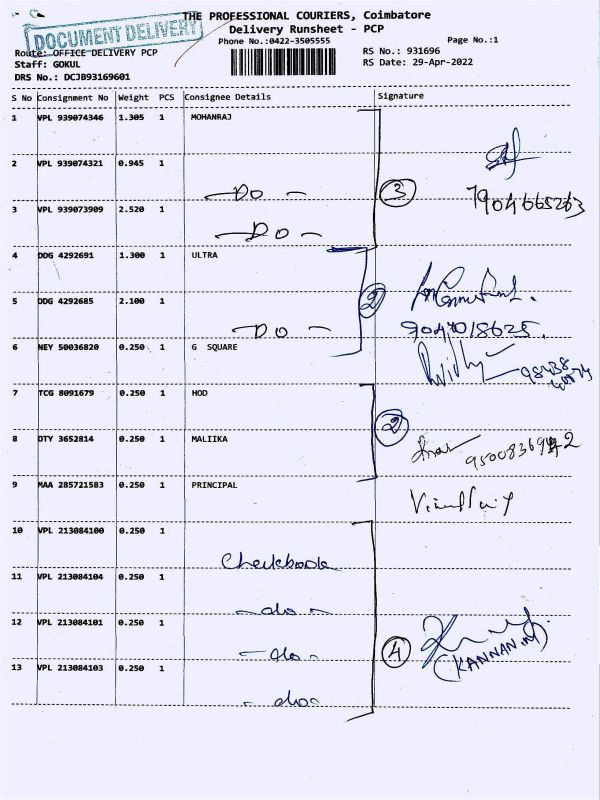 THE PROFESSIONAL COURIERS, Coimbatore
DOCUMENT DELIVERY
Delivery Runsheet - PCP
Phone No.:0422-3505555
Page No.:1
Route: OFFICE DELIVERY PCP
RS No.: 931696
Staff: GOKUL
RS Date: 29-Apr-2022
DRS No.: DCJB93169601
S No Consignment No Weight PCS Consignee Details Signature
1 VPL 939074346 1.305 1 MOHANRAJ
2 VPL 939074321 0.945 1
DO
3
7904665263
3 VPL 939073909 2.520 1
DO
4 DDG 4292691 1.300 1 ULTRA
2
5 DDG 4292685 2.100 1
DO
9047018625.
6 NEY 50036820 0.250 1 G SQUARE
7 TCG 8091679 0.250 1 HOD
2
8 DTY 3652814 0.250 1 MALIIKA
9 MAA 285721583 0.250 1 PRINCIPAL
10 VPL 213084100 0.250 1
Checkbook
11 VPL 213084104 0.250 1
do
12 VPL 213084101 0.250 1
do
4
(KANNAN.M)
13 VPL 213084103 0.250 1
do